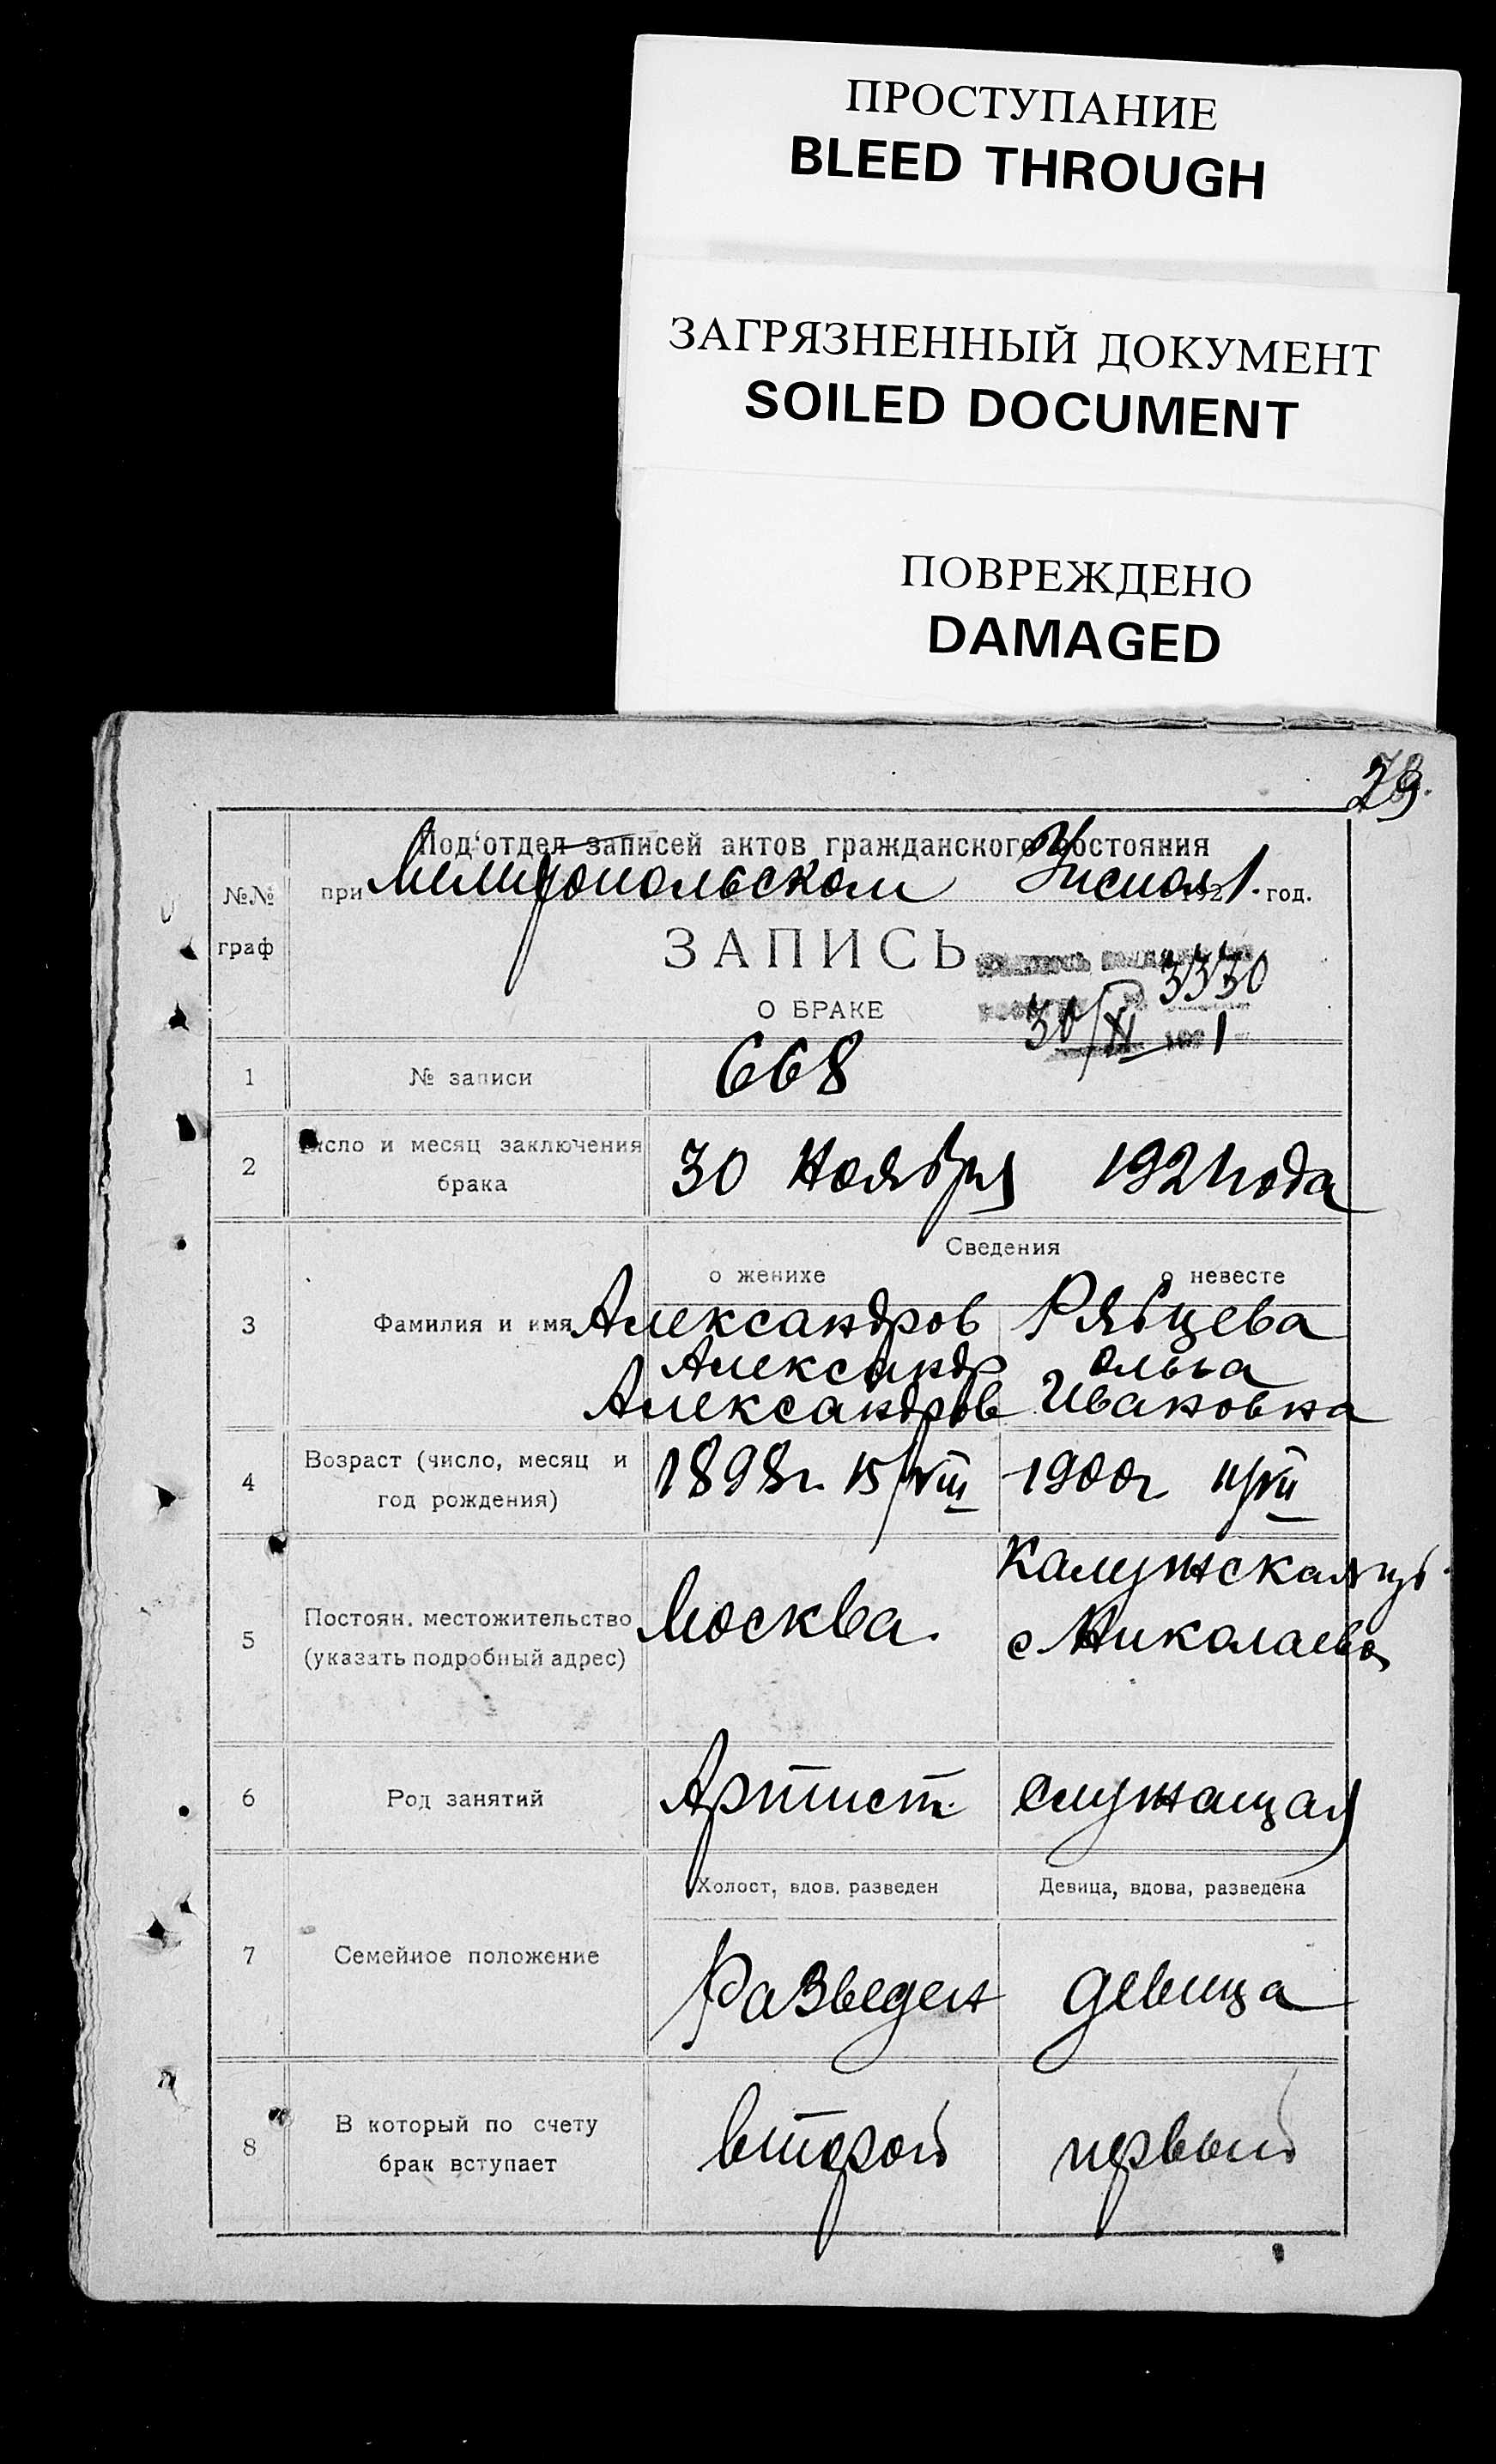 ПРОСТУПАНИЕ
BLEED THROUGH
ЗАГРЯЗНЕННЫЙ ДОКУМЕНТ
SOILED DOCUMENT
ПОВРЕЖДЕНО
DAMAGED
Под'отдел записей актов гражданского состояния
№.№ граф
при Мелитопольском 1921 год.
ЗАПИСЬ
3330
О БРАКЕ
30/XI 1
1 № записи 668
2 Число и месяц заключения брака 30 Ноября 1921 года
Сведения
о женихе о невесте
3 Фамилия и имя Александров Рябцева
Александр Ольга
Александров Ивановна
4 Возраст (число, месяц и год рождения) 1898г. 15/VIII 1900г 11/VII
5 Постоян. местожительство (указать подробный адрес) Москва. Калужская губ.
с Николаево
6 Род занятий Артист. служащая
Холост, вдов. разведен Девица, вдова, разведена
7 Семейное положение Разведен девица
8 В который по счету брак вступает второй первый